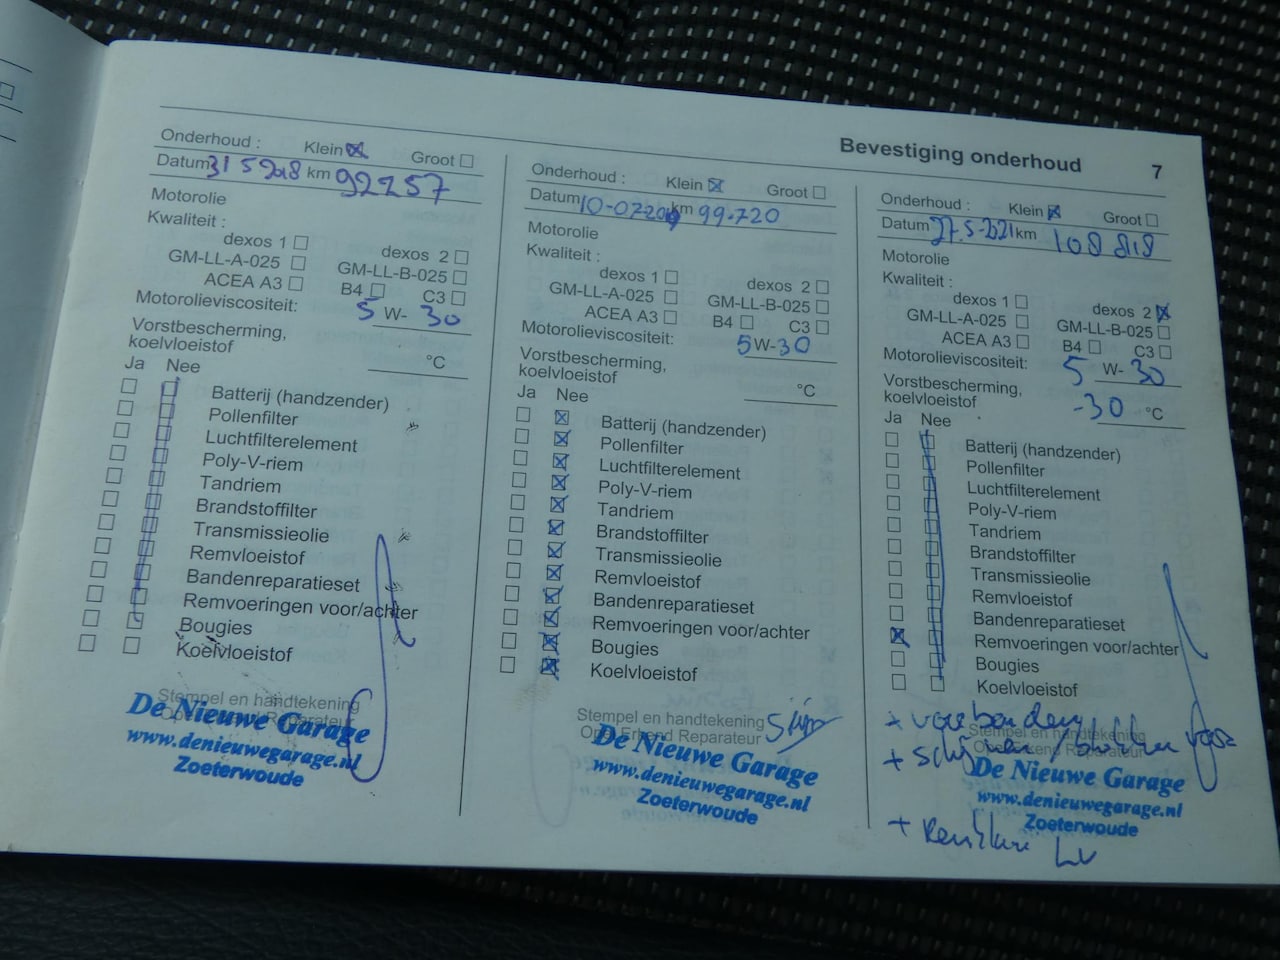 Bevestiging onderhoud 7
Onderhoud : Klein Groot
Datum 31 5 2018 km 92257
Motorolie
Kwaliteit :
dexos 1 dexos 2
GM-LL-A-025 GM-LL-B-025
ACEA A3 B4 C3
Motorolieviscositeit: 5 W- 30
Vorstbescherming,
koelvloeistof °C
Ja Nee
Batterij (handzender)
Pollenfilter
Luchtfilterelement
Poly-V-riem
Tandriem
Brandstoffilter
Transmissieolie
Remvloeistof
Bandenreparatieset
Remvoeringen voor/achter
Bougies
Koelvloeistof
Stempel en handtekening
Opel Erkend Reparateur
De Nieuwe Garage
www.denieuwegarage.nl
Zoeterwoude
Onderhoud : Klein Groot
Datum 10-07-2019 km 99.720
Motorolie
Kwaliteit :
dexos 1 dexos 2
GM-LL-A-025 GM-LL-B-025
ACEA A3 B4 C3
Motorolieviscositeit: 5 W- 30
Vorstbescherming,
koelvloeistof °C
Ja Nee
Batterij (handzender)
Pollenfilter
Luchtfilterelement
Poly-V-riem
Tandriem
Brandstoffilter
Transmissieolie
Remvloeistof
Bandenreparatieset
Remvoeringen voor/achter
Bougies
Koelvloeistof
Stempel en handtekening
Opel Erkend Reparateur
De Nieuwe Garage
www.denieuwegarage.nl
Zoeterwoude
Onderhoud : Klein Groot
Datum 27.5-2021 km 108 818
Motorolie
Kwaliteit :
dexos 1 dexos 2
GM-LL-A-025 GM-LL-B-025
ACEA A3 B4 C3
Motorolieviscositeit: 5 W- 30
Vorstbescherming,
koelvloeistof -30 °C
Ja Nee
Batterij (handzender)
Pollenfilter
Luchtfilterelement
Poly-V-riem
Tandriem
Brandstoffilter
Transmissieolie
Remvloeistof
Bandenreparatieset
Remvoeringen voor/achter
Bougies
Koelvloeistof
+ voorbanden
Stempel en handtekening
+ schijven
Opel Erkend Reparateur
De Nieuwe Garage
www.denieuwegarage.nl
Zoeterwoude
+ LV